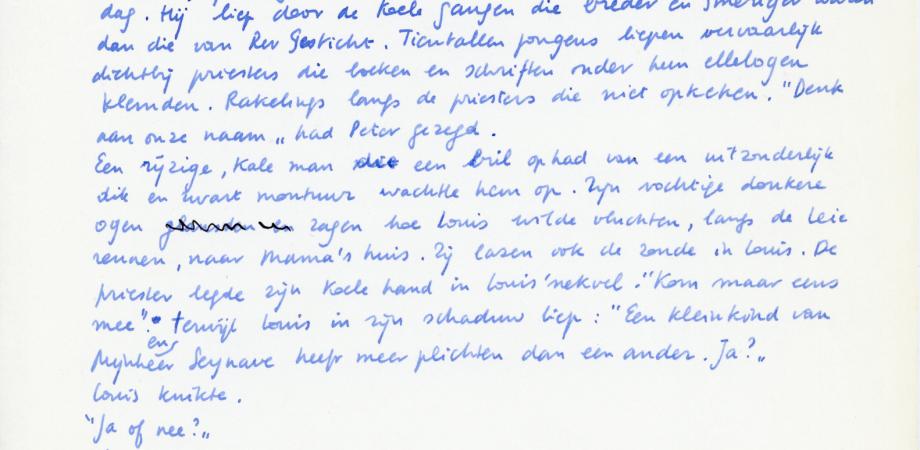 dag. Hij liep door de koele gangen die breder en smeriger waren
dan die van Rev Gesticht. Tientallen jongens liepen vervaarlijk
dichtbij priesters die boeken en schriften onder hun ellebogen
klemden. Rakelings langs de priesters die niet opkeken. "Denk
aan onze naam „ had Peter gezegd.
Een rijzige, kale man die een bril ophad van een uitzonderlijk
dik en zwart montuur wachtte hem op. Zijn vochtige donkere
ogen zagen hoe Louis wilde vluchten, langs de Leie
rennen, naar Mama's huis. Zij lazen ook de zonde in Louis. De
priester legde zijn koele hand in Louis' nekvel. "Kom maar eens
mee". Terwijl Louis in zijn schaduw liep : "Een kleinkind van
Mijnheer Seynave heeft meer plichten dan een ander. Ja?„
Louis knikte.
"Ja of nee?„